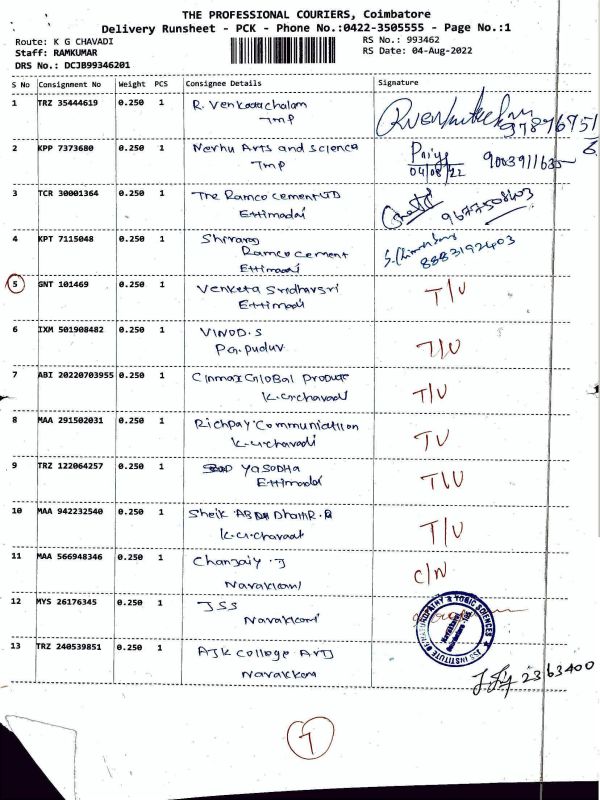 THE PROFESSIONAL COURIERS, Coimbatore
Delivery Runsheet - PCK - Phone No.:0422-3505555 - Page No.:1
Route: K G CHAVADI
RS No.: 993462
Staff: RAMKUMAR
RS Date: 04-Aug-2022
DRS No.: DCJB99346201
S No Consignment No Weight PCS Consignee Details Signature
1 TRZ 35444619 0.250 1 R. Venkatachalam
TMP
2 KPP 7373680 0.250 1 Nerhu Arts and science Priya 9003911635
TMP 04/08/22
3 TCR 30001364 0.250 1 The Ramco cement LTD 9677508403
Ettimadai
4 KPT 7115048 0.250 1
Ramco cement 8883192403
Ettimadai
5 GNT 101469 0.250 1 Venketa Sridharsri T/U
Ettimadi
6 IXM 501908482 0.250 1 VINOD.S T/U
P.G. Pudur
7 ABI 20220703955 0.250 1 Cinmax GloBal Produce T/U
K.G. chavadi
8 MAA 291502031 0.250 1 Richpay Communication TU
K.G. chavadi
9 TRZ 122064257 0.250 1 YASODHA T/U
Ettimadai
10 MAA 942232540 0.250 1 Sheik T/U
K.G. chavadi
11 MAA 566948346 0.250 1 C/N
Navakkarai
12 MYS 26176345 0.250 1 JSS
Navakkarai
JSS INSTITUTE OF NATUROPATHY & YOGIC SCIENCES
13 TRZ 240539851 0.250 1 AJK College Arts
Navakkarai 2363400
7